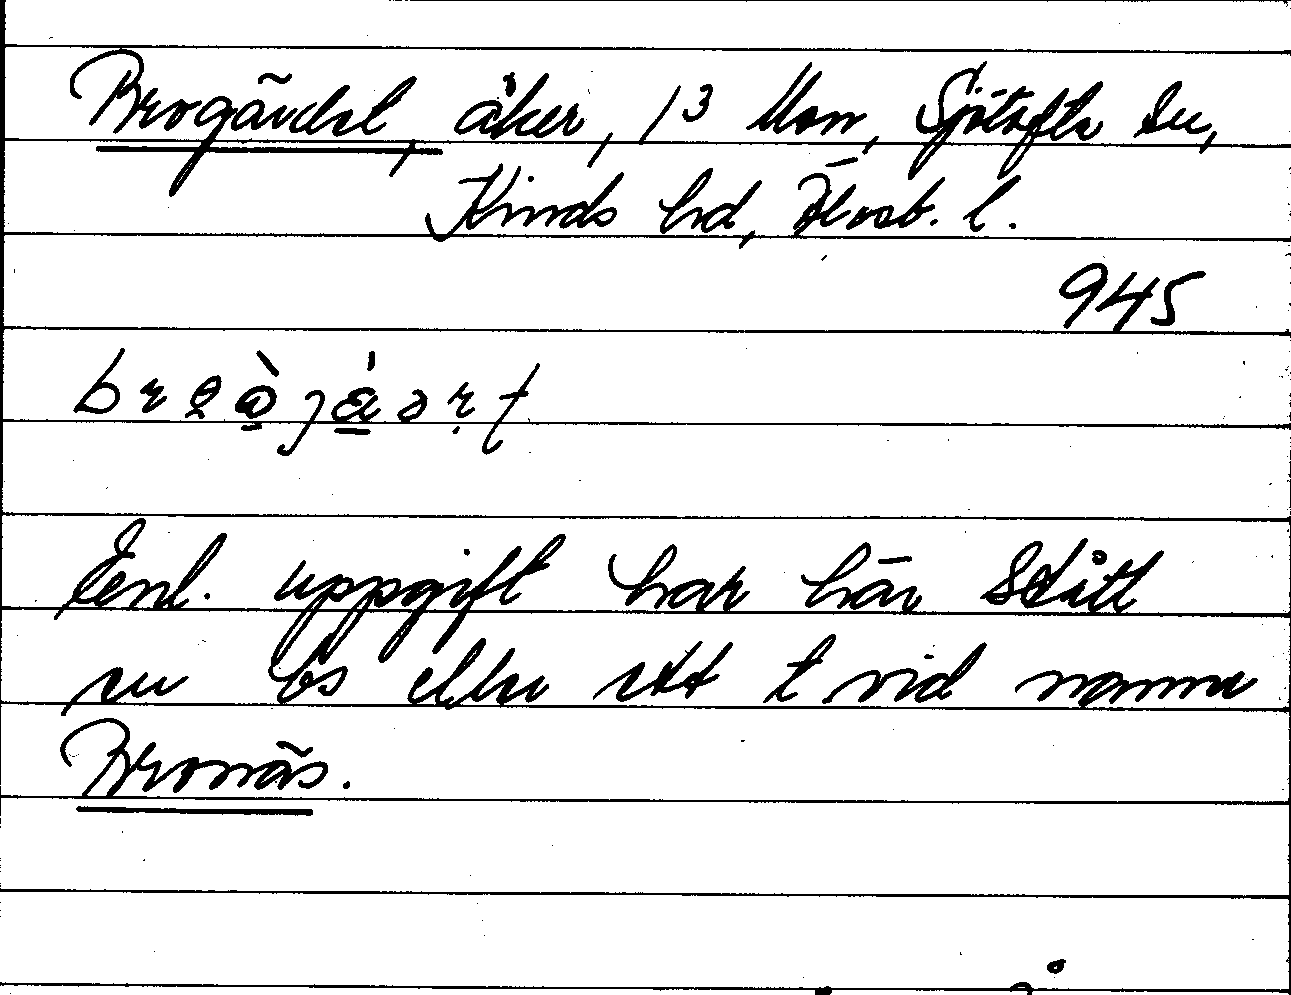 Brogärdet, åker, 1³ Mon, Sjötofta sn,
Kinds hd, Älvsb. l.
945
Enl. uppgift har här stått
en bs eller ett t vid namn
Bronäs.